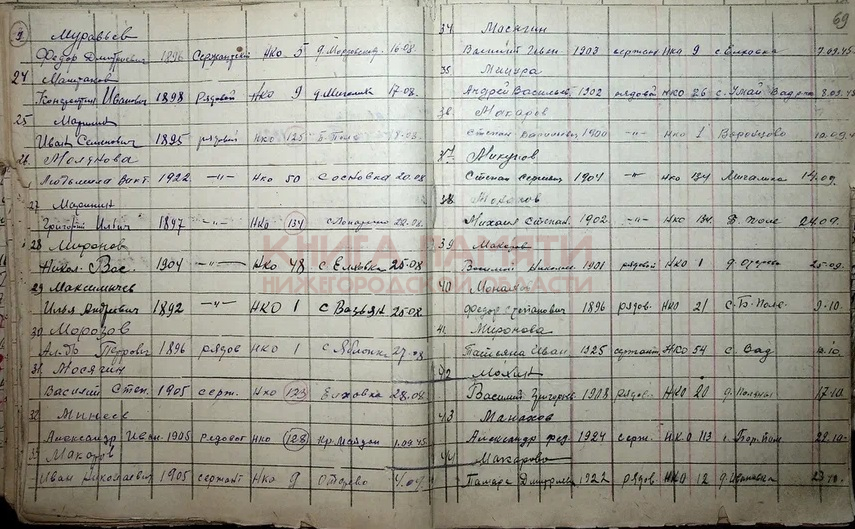 Муравьев
Федор Дмитриевич 1896 Сержантский НКО 5 16-08.
24
Маштаков
Кондратий Иванович 1898 рядовой НКО 9 17-08.
25
Маринин
Иван Семенович 1895 рядовой НКО 125
26
Молянова
Людьмила Викт. 1922 -"- НКО 50 Сосновка 20.08
27
Маринин
Григорий Ильич 1897 -"- НКО 134 22-08.
28
Миронов
Никол. Вас. 1904 -"- НКО 48 с Елховка 25-08
29
Максимычев
Илья Андреевич 1892 -"- НКО 1 с Вазьян 25-08
30
Морозов
Ал-др Петрович 1896 рядов НКО 1 с Яблонка 27-08
31
Мосягин
Василий Степ. 1905 серж. НКО 123 Елховка 28-08
32
Минеев
Александр Иван. 1905 Рядовой НКО 128 Кр-Майдан 1-09.45
33
Макаров
Иван Николаевич 1905 сержант НКО 9 4.09
69
34
Масягин
Василий Иван 1903 сержан НКО 9 с Елховка 7.09.45
35
Мишура
Андрей Василье. 1902 рядовой НКО 26 8.09.45
36
Макаров
Степан 1900 -"- НКО 1 Воронцово 10.09.4
37
Микунов
Степан Сергеевич 1904 -"- НКО 134 14.09.
38
Михаил Степан. 1902 -"- НКО 134. 24.09.
39
Макаров
Василий 1901 рядовой НКО 1 25-09.
40
Федор Степанович 1896 рядов. НКО 21 с. Б-Поле 9-10.
41
Миронова
Татьяна Иван 1925 сержант НКО 54 с. Вад
42
Мохин
Василий Григорьев 1908 рядов. НКО 20 17-10.
43
Манахов
Александр Фед. 1924 серж. НКО 113 22-10.
44
Макарова
Тамара Дмитриев 1922 рядов. НКО 12 д. Ивановка 23-10.
КНИГА ПАМЯТИ
НИЖЕГОРОДСКОЙ ОБЛАСТИ